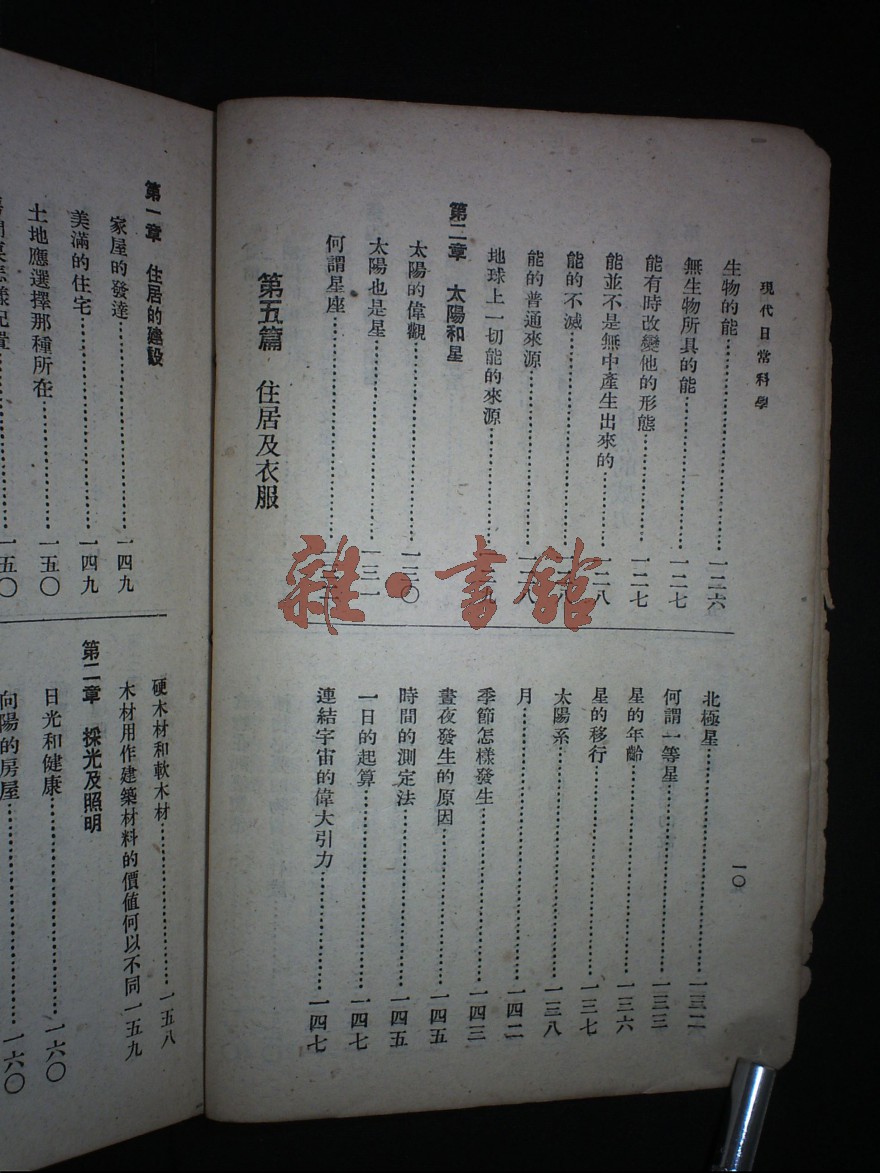 現代日常科學
一〇
生物的能…………一二六
無生物所具的能…………一二七
能有時改變他的形態…………一二七
能並不是無中產生出來的…………一二八
能的不滅…………一二八
能的普通來源…………一二八
地球上一切能的來源…………一二九
第二章 太陽和星
太陽的偉觀…………一三〇
太陽也是星…………一三一
何謂星座…………
北極星…………一三二
何謂一等星…………一三三
星的年齡…………一三六
星的移行…………一三七
太陽系…………一三八
月…………一四二
季節怎樣發生…………一四三
晝夜發生的原因…………一四五
時間的測定法…………一四五
一日的起算…………一四七
連結宇宙的偉大引力…………一四七
第五篇 住居及衣服
第一章 住居的建設
家屋的發達…………一四九
美滿的住宅…………一四九
土地應選擇那種所在…………一五〇
…………一五〇
硬木材和軟木材…………一五八
木材用作建築材料的價值何以不同一五九
第二章 採光及照明
日光和健康…………一六〇
向陽的房屋…………一六〇
雜·書館